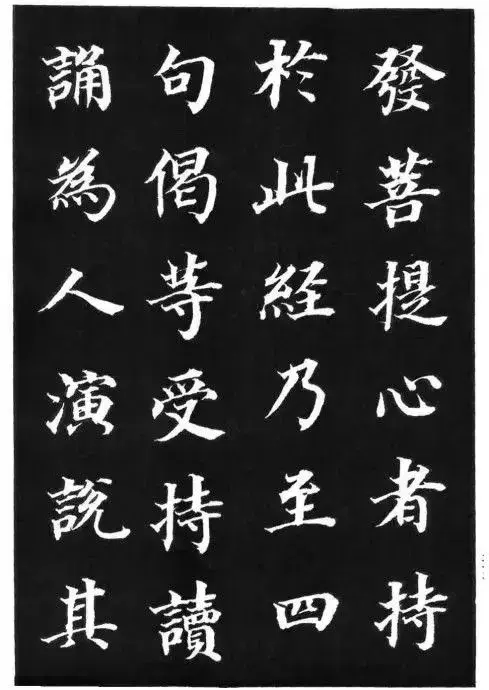 發菩提心者持
於此経乃至四
句偈等受持讀
誦為人演說其